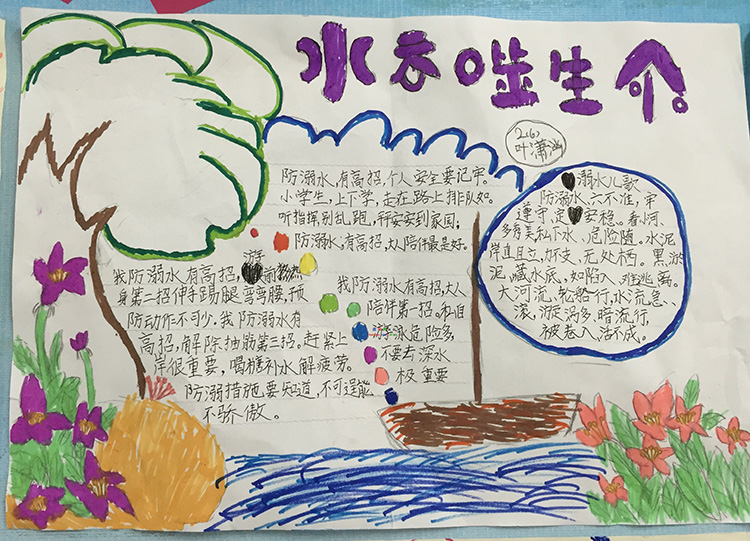 水
生
2(6)
叶潇
防溺水,有高招,个人安全要记牢。
小学生,上下学,走在路上排队如。
听指挥,别乱跑,平安安到家园;
防溺水,有高招,大人陪伴最是好。
我防溺水有高招,游前
身第二招伸手踢腿,弯弯腰,预
防动作不可少。我防溺水有
高招,解除抽筋第三招。赶紧上
岸很重要,喝糖补水解疲劳。
防溺措施要知道,不可逞能
不骄傲。
我防溺水有高招,大人
陪伴第一招。私自
游泳危险多,
不要去深水
极重要
溺水儿歌
防溺水,六不准,牢
遵守,定安稳。看小河,
多有美,私下水、危险随。水泥
岸直且立,怀支,无处栖。黑淤
泥,藏水底,如陷入,难逃离。
大河流、轮船行,水流急、
滚,漩涡多,暗流行,
被卷入,活不成。